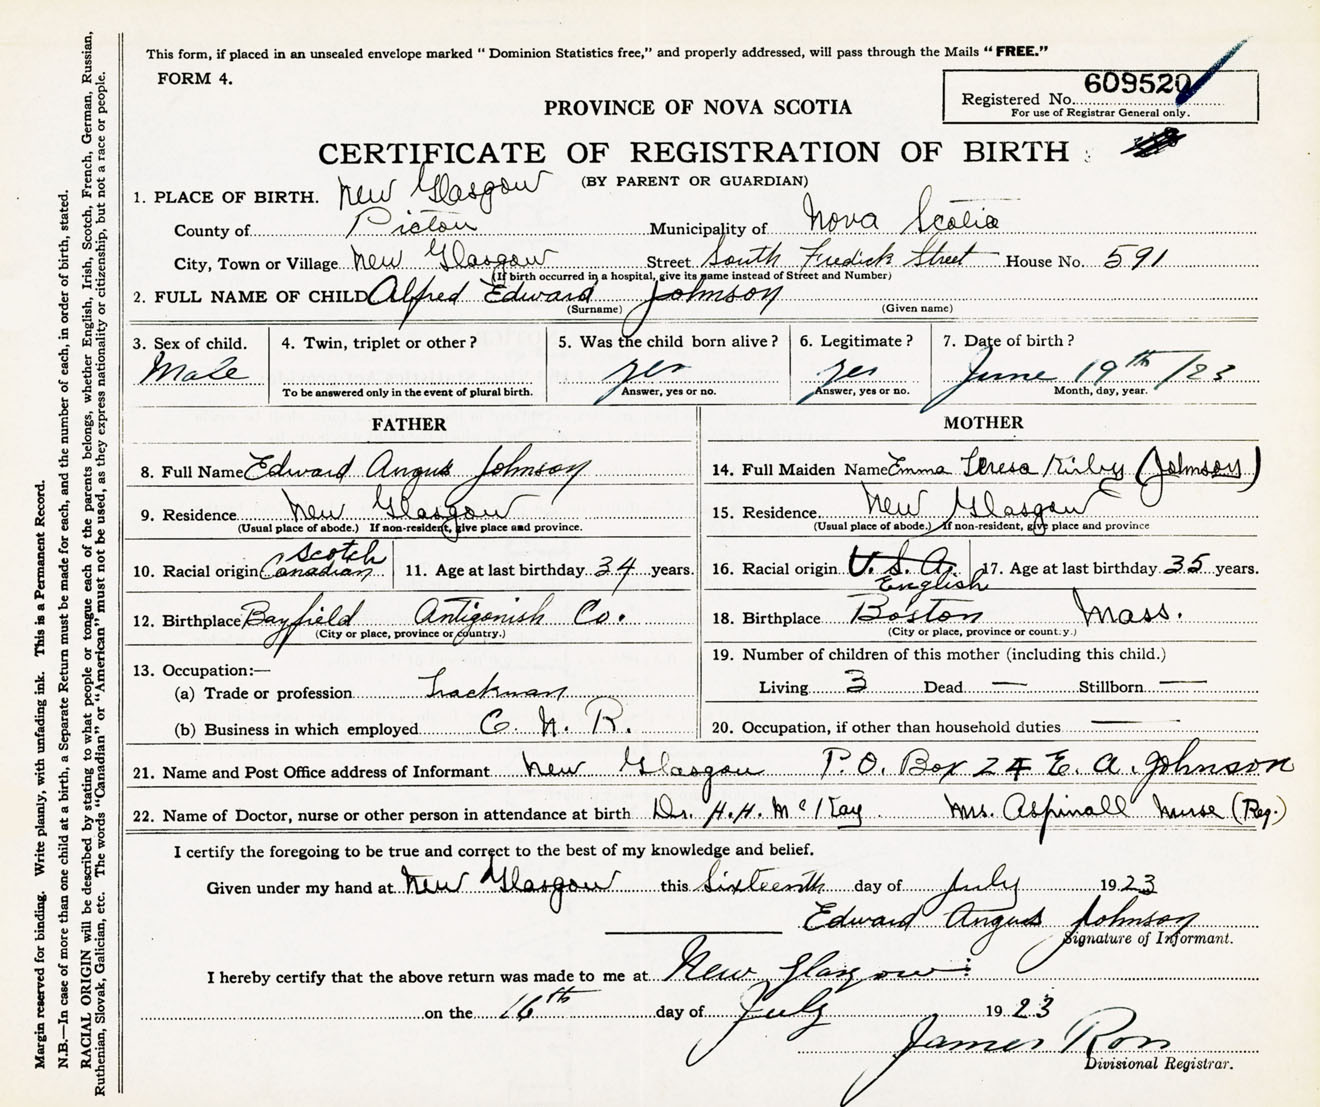 This form, if placed in an unsealed envelope marked “ Dominion Statistics free,” and properly addressed, will pass through the Mails “ FREE.”
FORM 4.
609520
Registered No.
For use of Registrar General only.
PROVINCE OF NOVA SCOTIA
CERTIFICATE OF REGISTRATION OF BIRTH
(BY PARENT OR GUARDIAN)
1. PLACE OF BIRTH. New Glasgow
County of Pictou Municipality of Nova Scotia
City, Town or Village New Glasgow Street South Fredick Street House No. 591
(If birth occurred in a hospital, give its name instead of Street and Number)
2. FULL NAME OF CHILD Alfred Edward Johnson
(Surname) (Given name)
3. Sex of child. 4. Twin, triplet or other ? 5. Was the child born alive ? 6. Legitimate ? 7. Date of birth ?
Male yes yes June 19th /23
To be answered only in the event of plural birth. Answer, yes or no. Answer, yes or no. Month, day, year.
FATHER MOTHER
8. Full Name Edward Angus Johnson 14. Full Maiden Name Emma Teresa Kirby (Johnson)
9. Residence New Glasgow 15. Residence New Glasgow
(Usual place of abode.) If non-resident, give place and province. (Usual place of abode.) If non-resident, give place and province
10. Racial origin Scotch Canadian 11. Age at last birthday 34 years. 16. Racial origin U. S. A. English 17. Age at last birthday 35 years.
12. Birthplace Bayfield Antigonish Co. 18. Birthplace Boston Mass.
(City or place, province or country.) (City or place, province or country.)
13. Occupation:— 19. Number of children of this mother (including this child.)
(a) Trade or profession Trackman Living 3 Dead — Stillborn —
(b) Business in which employed C. N. R. 20. Occupation, if other than household duties —
21. Name and Post Office address of Informant New Glasgow P. O. Box 24 E. A. Johnson
22. Name of Doctor, nurse or other person in attendance at birth Dr. H. H. McKay Mrs. Aspinall Nurse (Reg.)
I certify the foregoing to be true and correct to the best of my knowledge and belief.
Given under my hand at New Glasgow this Sixteenth day of July 1923
Edward Angus Johnson
Signature of Informant.
I hereby certify that the above return was made to me at New Glasgow
on the 16th day of July 1923
James Ross
Divisional Registrar.
Margin reserved for binding. Write plainly, with unfading ink. This is a Permanent Record.
N.B.—In case of more than one child at a birth, a Separate Return must be made for each, and the number of each, in order of birth, stated.
RACIAL ORIGIN will be described by stating to what people or tongue each of the parents belongs, whether English, Irish, Scotch, French, German, Russian,
Ruthenian, Slovak, Galician, etc. The words “Canadian” or “American” must not be used, as they express nationality or citizenship, but not a race or people.